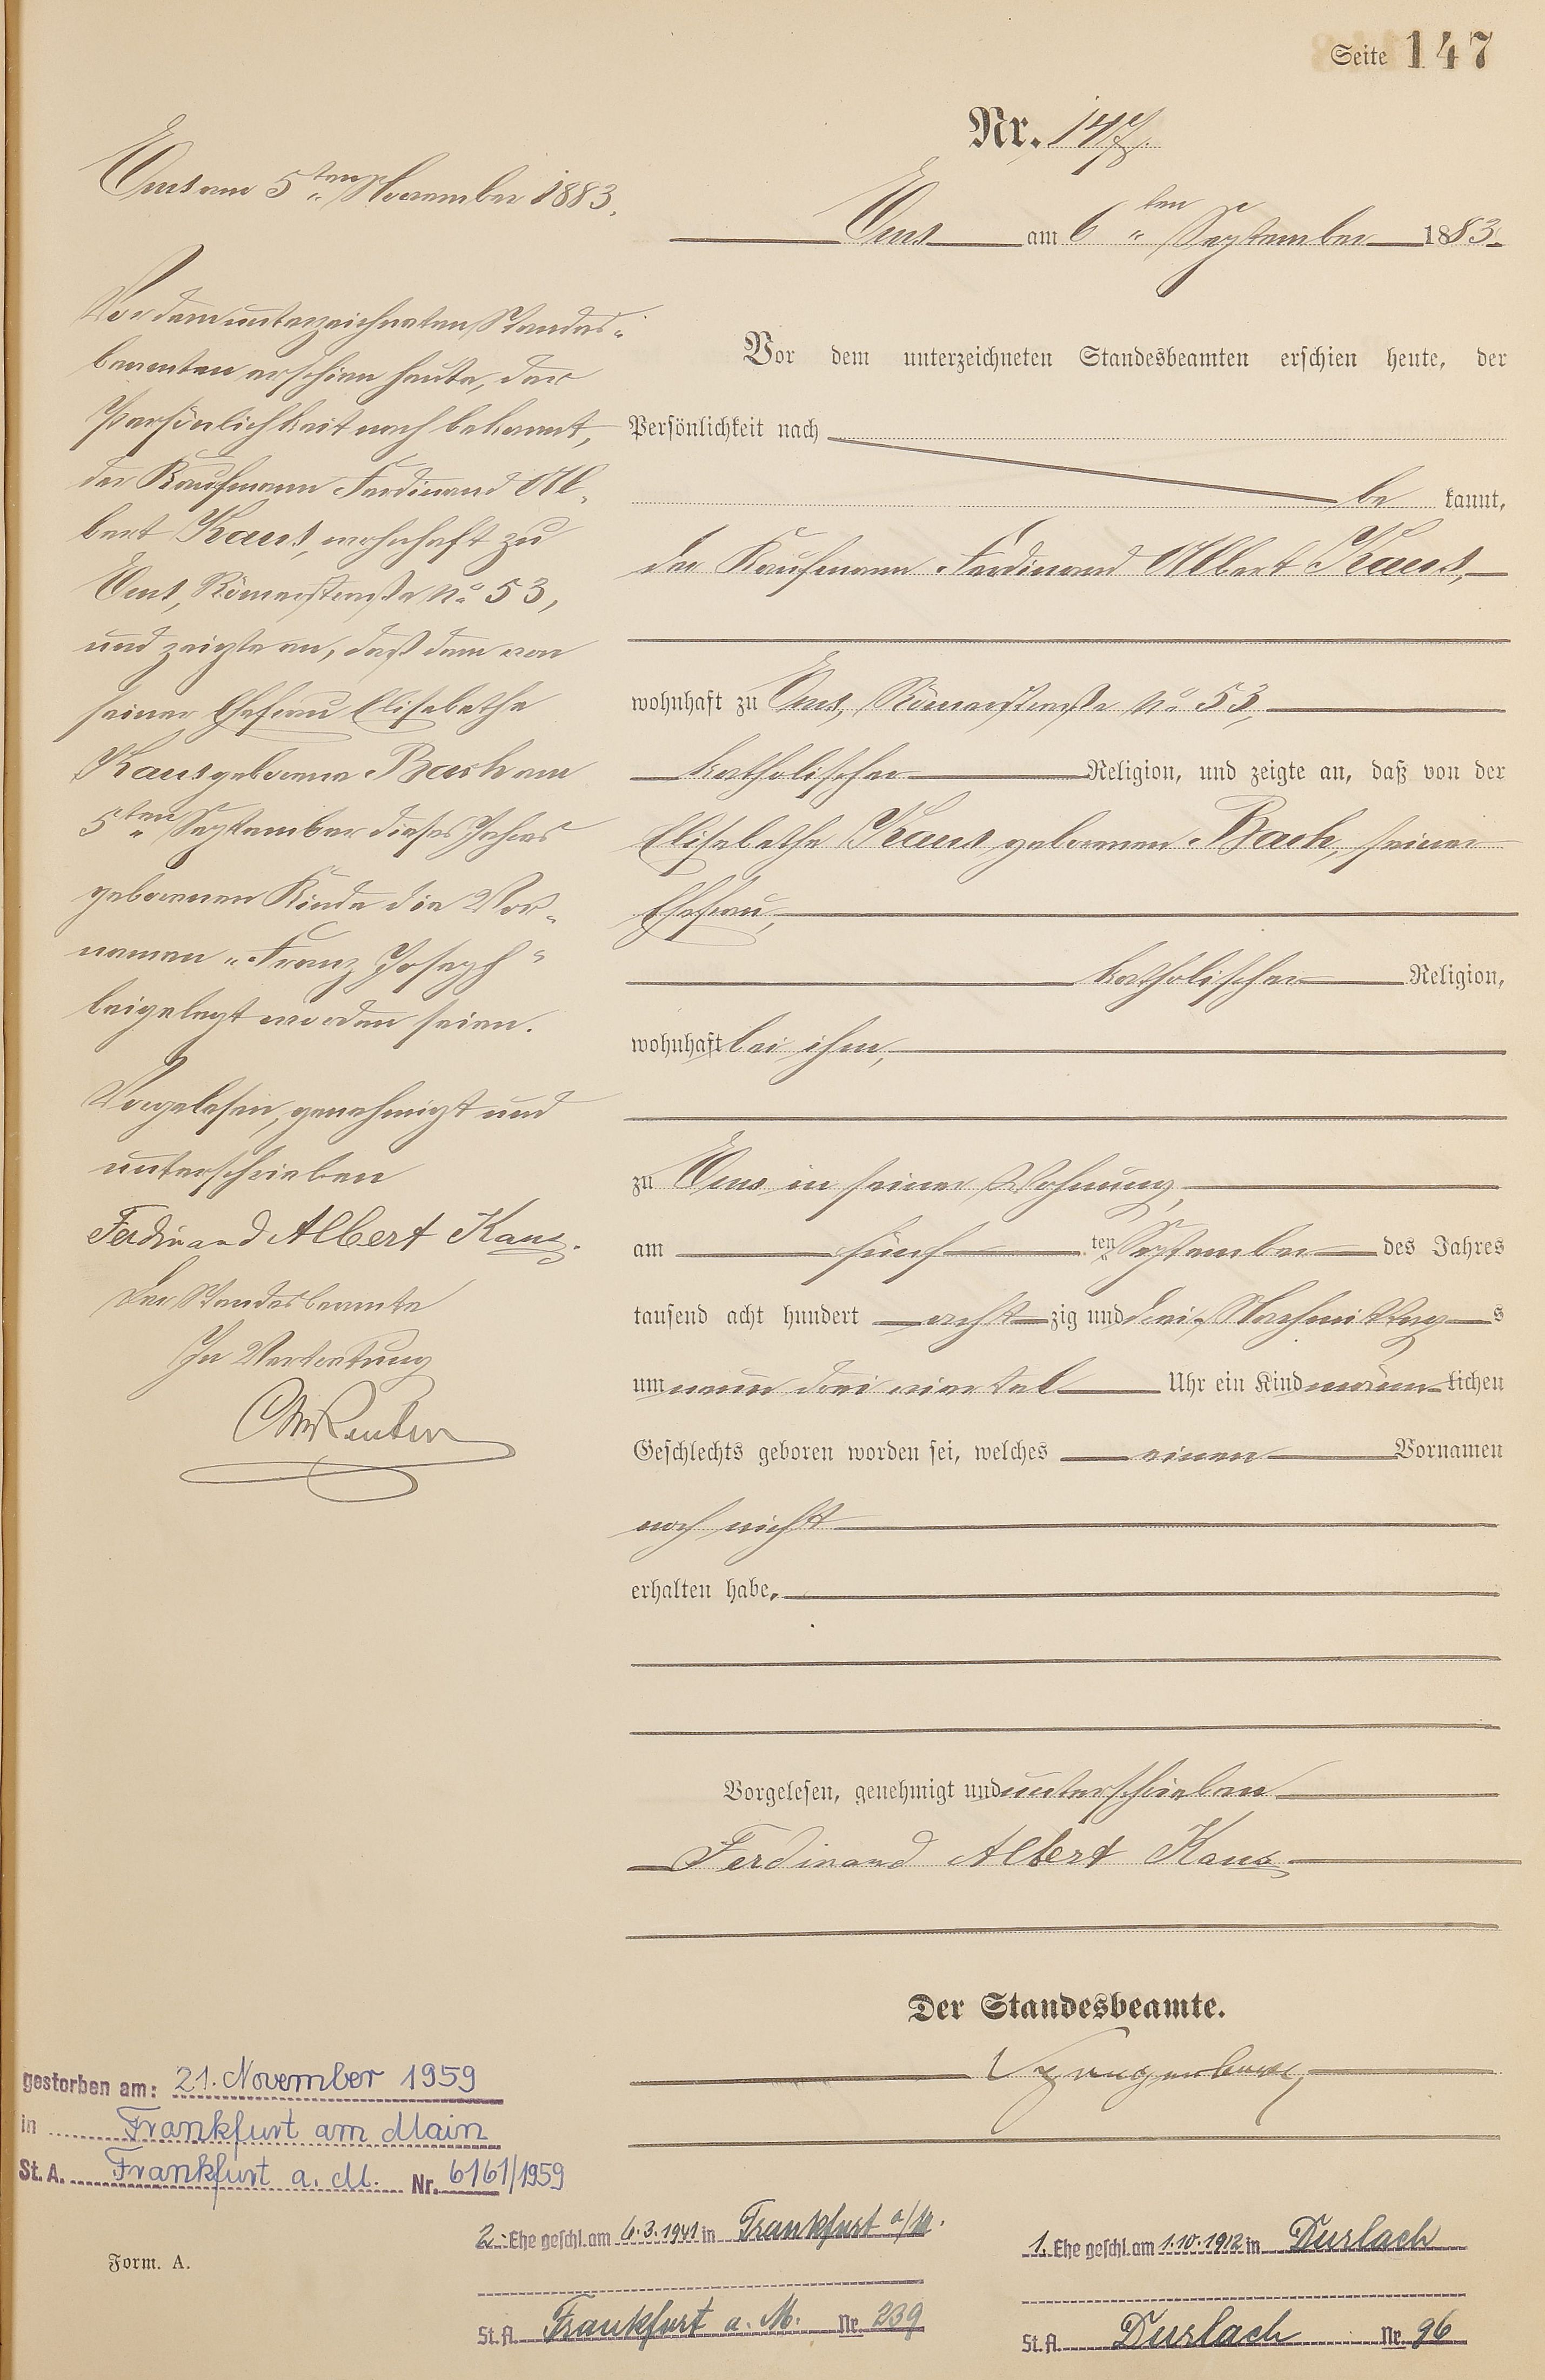 Seite 147
Nr. 147.
Ems am 6ten September 1883.
Vor dem unterzeichneten Standesbeamten erschien heute, der
Persönlichkeit nach
be kannt,
der Kaufmann Ferdinand Albert Kaus,
wohnhaft zu Ems, Römerstraße No 53,
katholischer Religion, und zeigte an, daß von der
Elisabethe Kaus geborenen Bach, seiner
Ehefrau,
katholischer Religion,
wohnhaft bei ihm,
zu Ems in seiner Wohnung,
am fünf ten September des Jahres
tausend acht hundert acht zig und drei Nachmittag s
um neun drei viertel Uhr ein Kind männ lichen
Geschlechts geboren worden sei, welches einen Vornamen
noch nicht
erhalten habe.
Vorgelesen, genehmigt und unterschrieben
Ferdinand Albert Kaus
Der Standesbeamte.
Ems am 5ten November 1883.
Vor dem unterzeichneten Standes-
beamten erschien heute, der
Persönlichkeit nach bekannt,
der Kaufmann Ferdinand Al-
bert Kaus, wohnhaft zu
Ems, Römerstraße No 53,
und zeigte an, daß dem von
seiner Ehefrau Elisabethe
Kaus geborene Bach am
5ten September dieses Jahres
geborenen Kinde die Vor-
namen „Franz Joseph"
beigelegt worden seien.
Vorgelesen, genehmigt und
unterschrieben
Ferdinand Albert Kaus.
Der Standesbeamte
In Vertretung
gestorben am: 21. November 1959
in Frankfurt am Main
St. A. Frankfurt a. M. Nr. 6161/1959
2. Ehe geschl. am 6.3.1941 in Frankfurt a/M.
St. A. Frankfurt a. M. Nr. 239
1. Ehe geschl. am 1.10.1912 in Durlach
St. A. Durlach Nr. 96
Form. A.